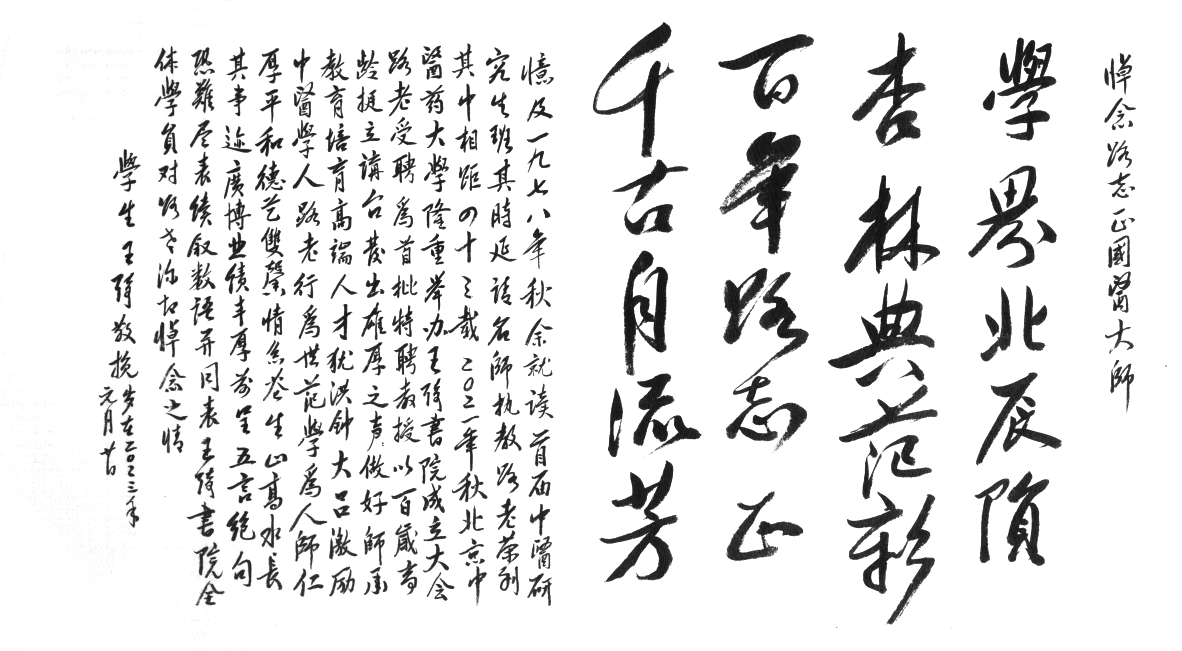 悼念路志正國醫大師
學界北辰隕
杏林典范彰
百年路志正
千古自流芳
憶及一九七八年秋余就读首届中醫研
究生班其時延请名師执教路老荣列
其中相距四十三载二0二一年秋北京中
醫药大學隆重举办王琦書院成立大会
路老受聘為首批特聘教授以百歲高
龄挺立講台發出雄厚之声做好師承
教育培育高端人才犹洪钟大吕激励
中醫學人路老行為世范學為人師仁
厚平和德艺雙馨情系苍生山高水長
其事迹廣博业绩丰厚前呈五言绝句
恐難尽表续叙数语并同表王琦書院全
体學員对路老深切悼念之情
學生王琦敬挽 岁在二0二三年
元月廿